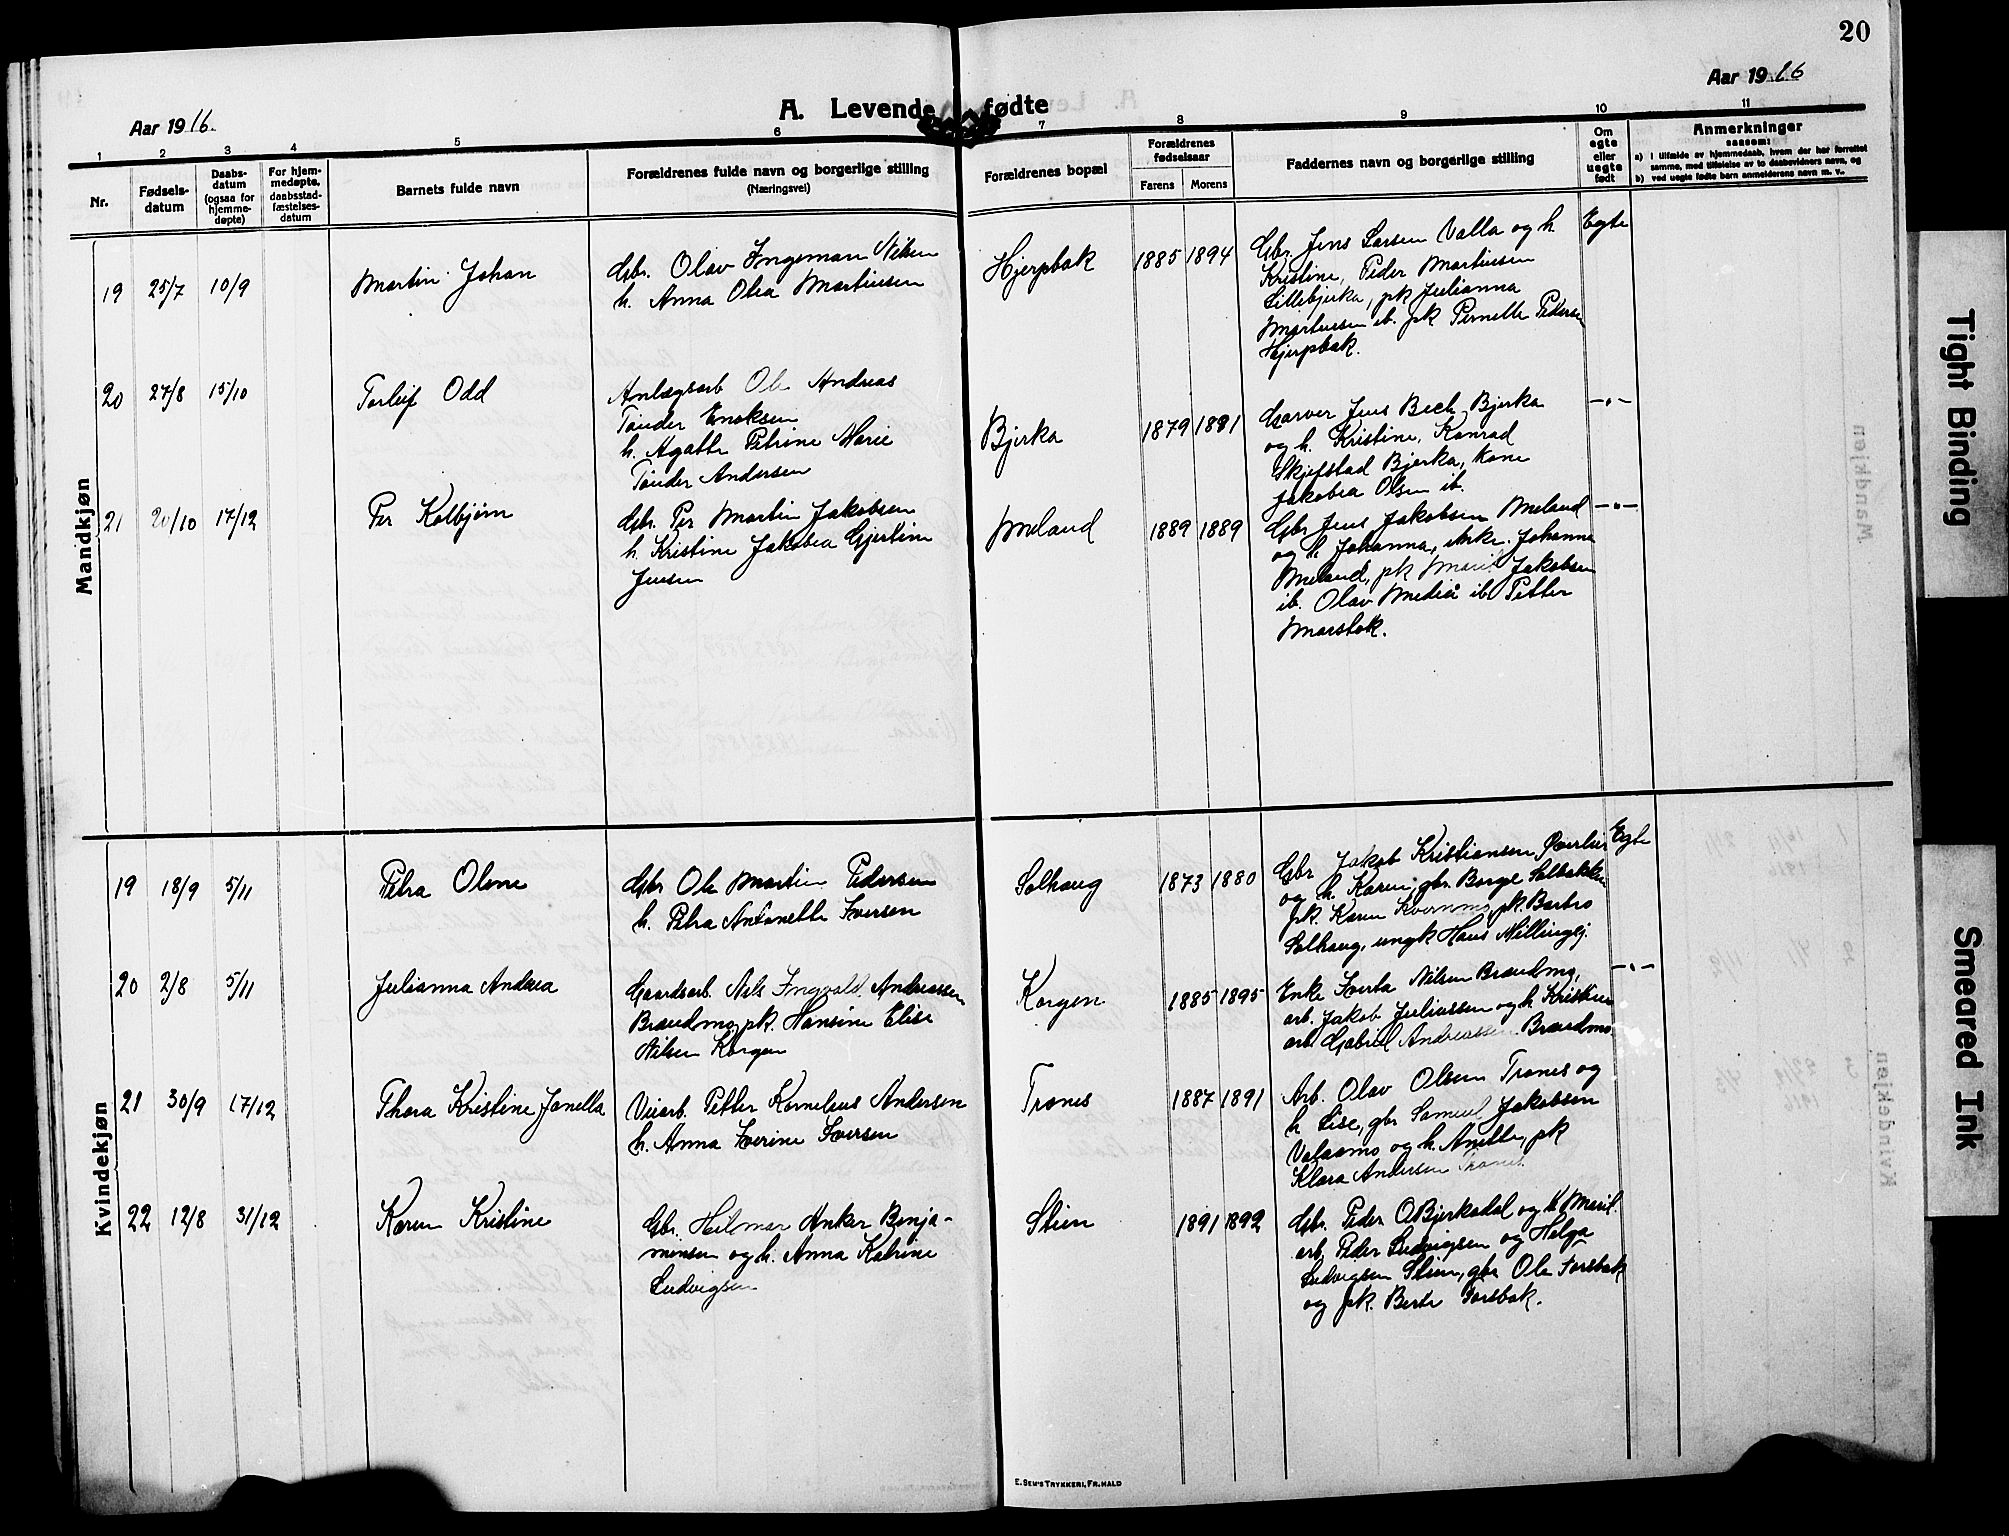 20
Aar 1916.
A. Levende fødte
Aar 1916
1 2 3 4 5 6 7 8 9 10 11
Nr.
Fødsels-
datum
Daabs-
datum
(ogsaa for
hjemme-
døpte)
For hjem-
medøpte,
daabsstad-
fæstelses-
datum
Barnets fulde navn
Forældrenes fulde navn og borgerlige stilling
(Næringsvei)
Forældrenes bopæl
Forældrenes
fødselsaar
Farens Morens
Faddernes navn og borgerlige stilling
Om
egte
eller
uegte
født
Anmerkninger
saasom:
a) i tilfælde av hjemmedaab, hvem der har forrettet
samme, med tilføielse av to daabsvidners navn, og
b) ved uegte fødte barn anmelderens navn m. v.
Mandkjøn
19 25/7 10/9 Martin Johan
Gbr. Olav Ingeman Nilsen
h. Anna Olea Martinsen
Hjerpbak 1885 1894
Gbr. Jens Larsen Valla og h
Kristine, Peder Martinsen
Lillebjerka, pk Julianna
Martinsen ib. pk Pernelle Pedersen
Hjerpbak.
Egte
20 27/8 15/10 Torleif Odd
Anlægsarb Ole Andreas
Tønder Enoksen
h. Agathe Petrine Marie
Tønder Andersen
Bjerka 1879 1881
Garver Jens Bech Bjerka
og h. Kristine, Konrad
Skjefstad Bjerka, Kone
Jakobea Olsen ib.
-"-
21 20/10 17/12 Per Kolbjørn
Gbr. Per Martin Jakobsen
h. Kristine Jakobea Gjertine
Jensen
Meland 1889 1889
Gbr Jens Jakobsen Meland
og h Johanna, enke Johanna
Meland, pk Marie Jakobsen
ib. Olav Medie ib Petter
Marsbak.
-"-
Kvindekjøn
19 18/9 5/11 Petra Oline
Gbr Ole Martin Pedersen
h. Petra Antonette Iversen
Solhaug 1873 1880
Gbr Jakob Kristiansen Øverlier
og h. Karen, gbr. Borge Solbakken
pk. Karen Kvernmo, pk. Barbro
Solhaug, ungk Hans Millingsj.
Egte
20 2/8 5/11 Julianna Andrea
Gaardsarb. Nils Ingvald Andreassen
Brændmo, pk. Hansine Elise
Nilsen Korgen
Korgen 1885 1895
Enke Iverta Nilsen Brændmo,
arb. Jakob Juliussen og h Kristine
arb Gabriel Andreassen Brændmo
-"-
21 30/9 17/12 Thora Kristine Jonella
Veiarb. Petter Kornelius Andersen
h. Anna Iverine Iversen
Tranes 1887 1891
Arb. Olav Olsen Tranes og
h Lise, gbr Samuel Jakobsen
Valaamo og h. Anette, pk
Klara Andersen Tranes.
22 12/8 31/12 Karen Kristine
Gbr. Hilmar Anker Benja-
minsen og h. Anna Katrine
Ludvigsen
Stien 1891 1892
Gbr. Peder O Bjerkadal og h Marie
arb. Peder Ludvigsen og Helga
Ludvigsen Stien, gbr Ole Forsbak
og pk. Berte Forsbak.
E. Sem's Trykkeri, Fr.hald
Tight Binding
Smeared Ink